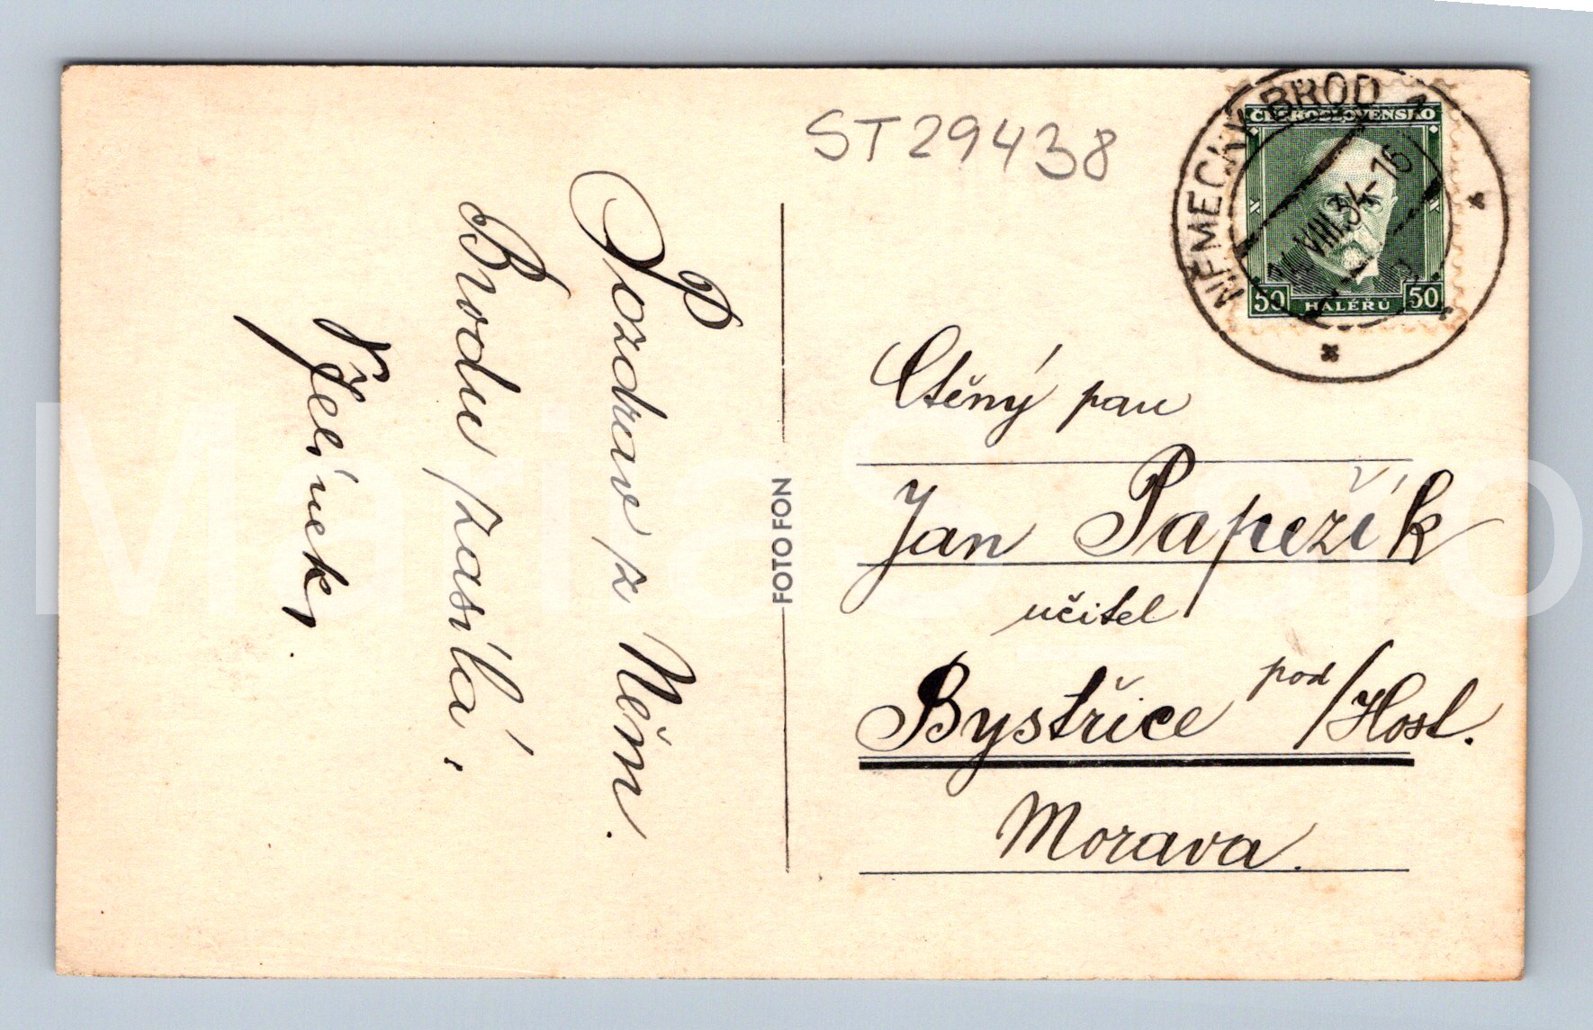 ST29438
NĚMECKÝ BROD 1
14.VIII.34-16
ČESKOSLOVENSKO
50 HALÉŘŮ 50
Pozdrav z Něm.
Brodu zasílá,
Jelínek,
FOTOFON
Ctěný pan
Jan Papežík
učitel
Bystřice pod/Host.
Morava.